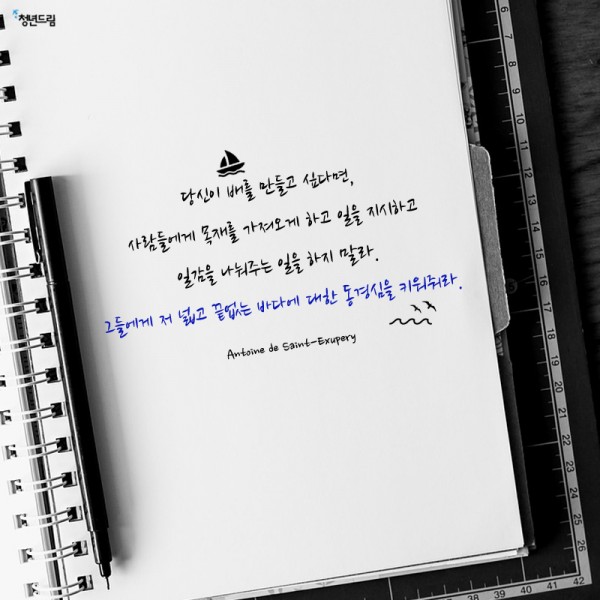 청년드림
당신이 배를 만들고 싶다면,
사람들에게 목재를 가져오게 하고 일을 지시하고
일감을 나눠주는 일을 하지 말라.
그들에게 저 넓고 끝없는 바다에 대한 동경심을 키워줘라.
Antoine de Saint-Exupery
6
7
8
9
10
11
12
13
14
15
16
17
18
19
20
21
22
23
24
25
26
38
39
40
41
42